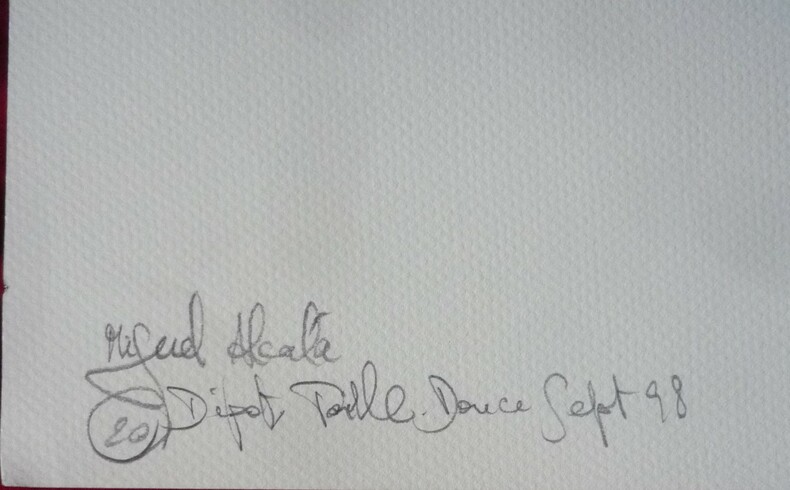 Miguel Alcala
20 Dépot Taille. Douce Sept 98